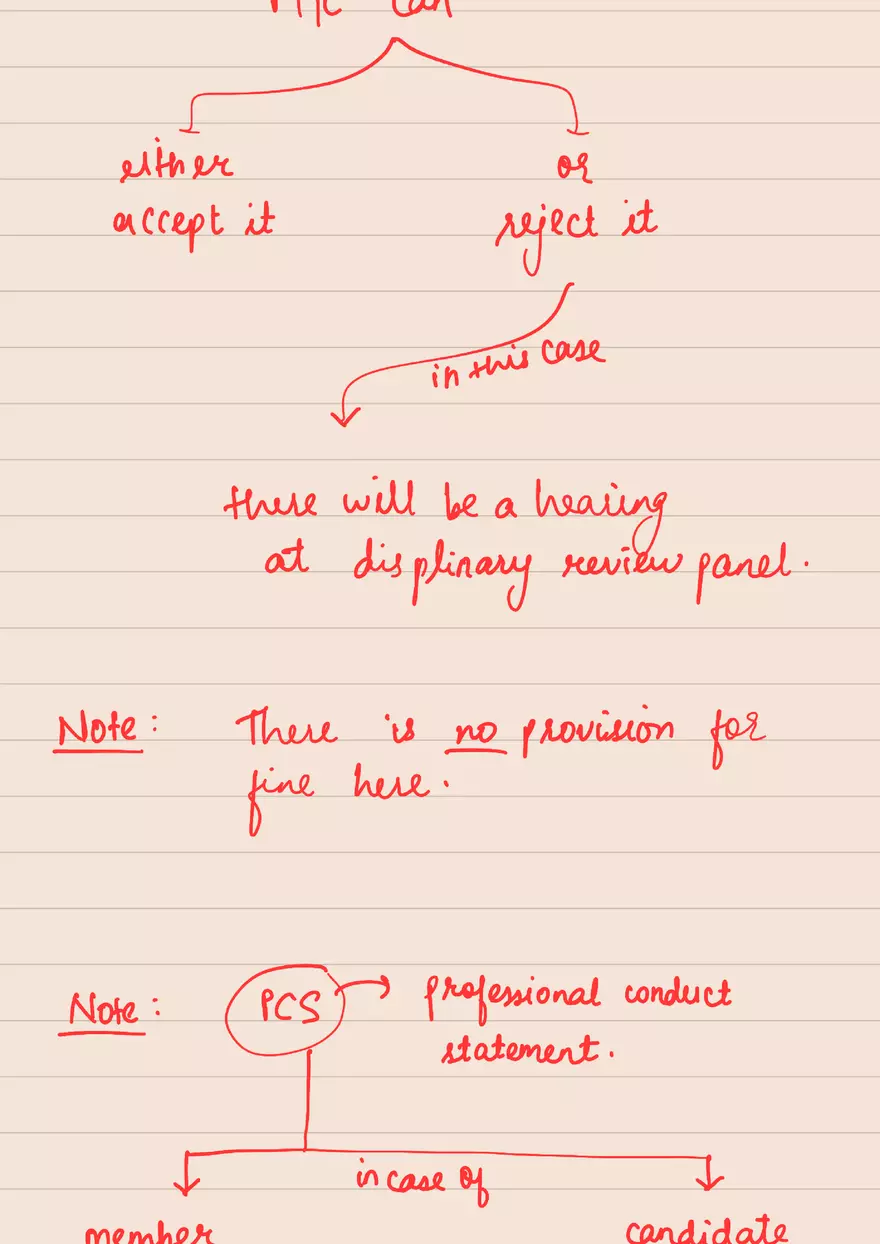 can
either
or
accept it
reject it
in this case
there will be a hearing
at displinary review panel.
Note: There is no provision for
fine here.
Note: PCS professional conduct
statement.
in case of
member
candidate